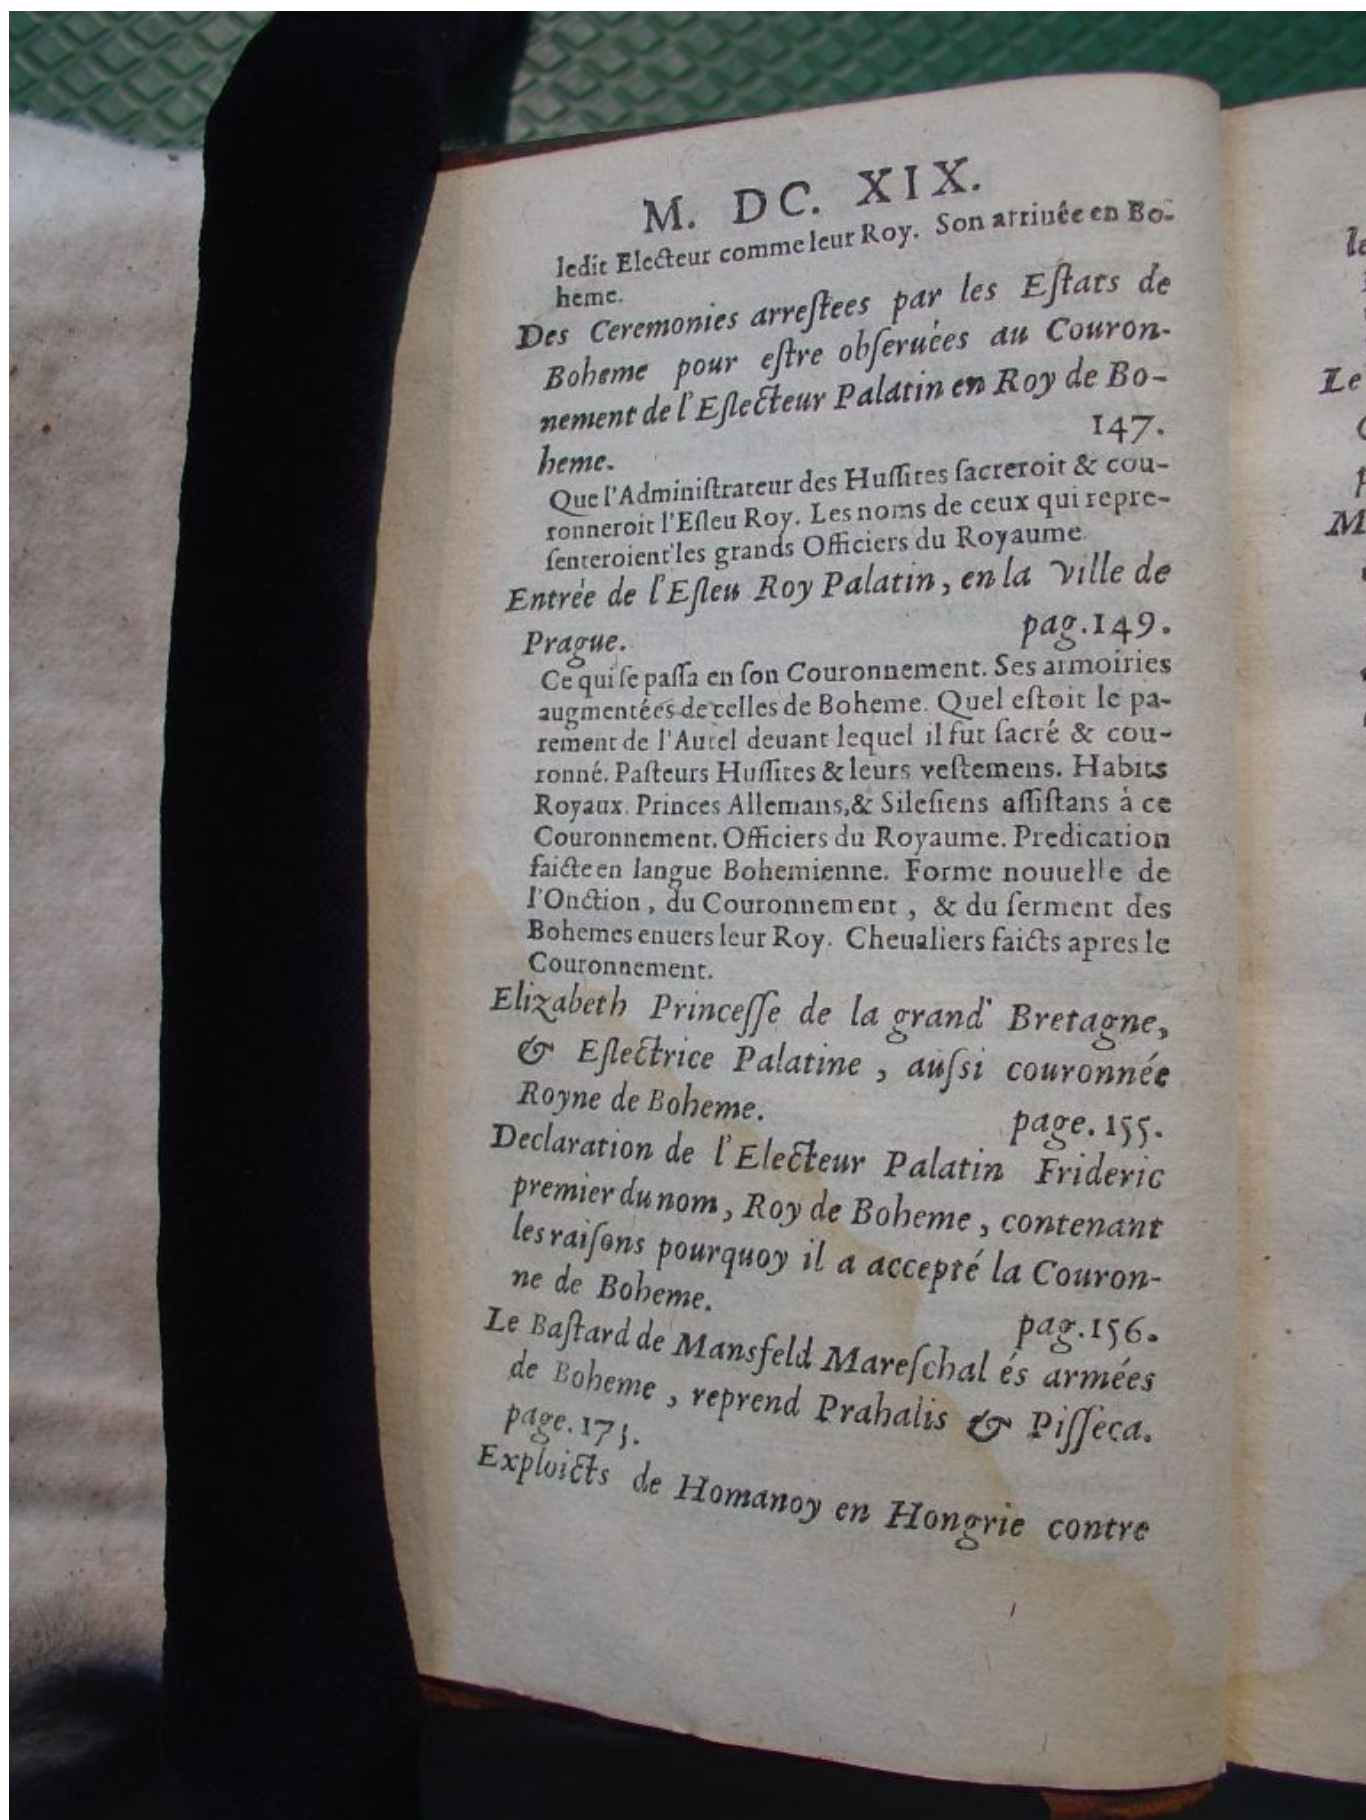 M. DC. XIX.
ledit Electeur comme leur Roy. Son arriuée en Bo-
heme.
Des Ceremonies arreſtees par les Eſtats de
Boheme pour eſtre obſeruées au Couron-
nement de l'Eſlecteur Palatin en Roy de Bo-
heme. 147.
Que l'Adminiſtrateur des Huſſites ſacreroit & cou-
ronneroit l'Eſleu Roy. Les noms de ceux qui repre-
ſenteroient les grands Officiers du Royaume
Entrée de l'Eſleu Roy Palatin, en la ville de
Prague. pag.149.
Ce qui ſe paſſa en ſon Couronnement. Ses armoiries
augmentées de celles de Boheme. Quel eſtoit le pa-
rement de l'Autel deuant lequel il fut ſacré & cou-
ronné. Paſteurs Huſſites & leurs veſtemens. Habits
Royaux. Princes Allemans,& Sileſiens aſſiſtans à ce
Couronnement. Officiers du Royaume. Predication
faicte en langue Bohemienne. Forme nouuelle de
l'Onction, du Couronnement, & du ſerment des
Bohemes enuers leur Roy. Cheualiers faicts apres le
Couronnement.
Elizabeth Princeſſe de la grand' Bretagne,
& Eſlectrice Palatine, auſsi couronnée
Royne de Boheme. page.155.
Declaration de l'Electeur Palatin Frideric
premier du nom, Roy de Boheme, contenant
les raiſons pourquoy il a accepté la Couron-
ne de Boheme. pag.156.
Le Baſtard de Mansfeld Mareſchal és armées
de Boheme, reprend Prahalis & Piſſeca.
page.173.
Exploicts de Homanoy en Hongrie contre
Le
M